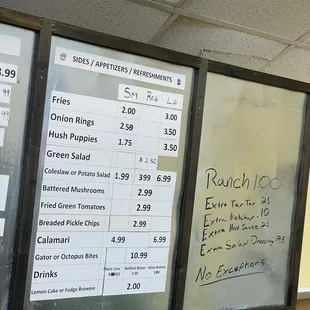 SIDES / APPETIZERS / REFRESHMENTS
Sm Reg Lg
Fries 2.00 3.00
Onion Rings 2.50 3.50
Hush Puppies 1.75 3.50
Green Salad $2.50
Coleslaw or Potato Salad 1.99 399 6.99
Battered Mushrooms 2.99
Fried Green Tomatoes 2.99
Breaded Pickle Chips 2.99
Calamari 4.99 6.99
Gator or Octopus Bites 10.99
Drinks
Lemon Cake or Fudge Brownie 2.00
3.99
Ranch 100
Extra Tar Tar 25
Extra Ketchup .10
Extra Hot Sauce 25
Extra Salad Dressing
No Exceptions